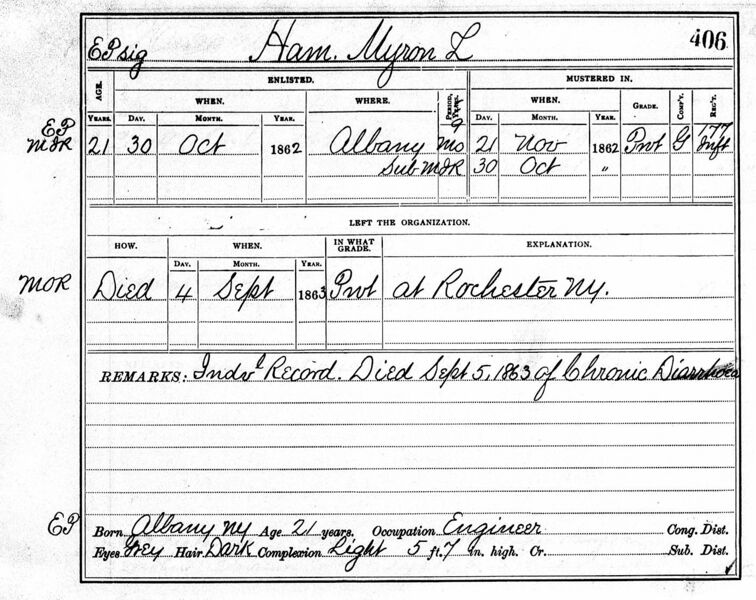 EP sig Ham. Myron L 406
AGE. ENLISTED. MUSTERED IN.
YEARS. WHEN. WHERE. PERIOD, YEARS. WHEN. GRADE. COMP'Y. REG'T.
DAY. MONTH. YEAR. DAY. MONTH. YEAR.
EP 9 177
MIR 21 30 Oct 1862 Albany Mo 21 Nov 1862 Pvt G Inft
Sub MIR 30 Oct "
LEFT THE ORGANIZATION.
HOW. WHEN. IN WHAT GRADE. EXPLANATION.
DAY. MONTH. YEAR.
MOR Died 4 Sept 1863 Pvt at Rochester NY.
REMARKS: Indvl Record. Died Sept 5, 1863 of Chronic Diarrhoea
EP Born Albany NY Age 21 years. Occupation Engineer Cong. Dist.
Eyes Grey Hair Dark Complexion Light 5 ft. 7 in. high. Cr. Sub. Dist.